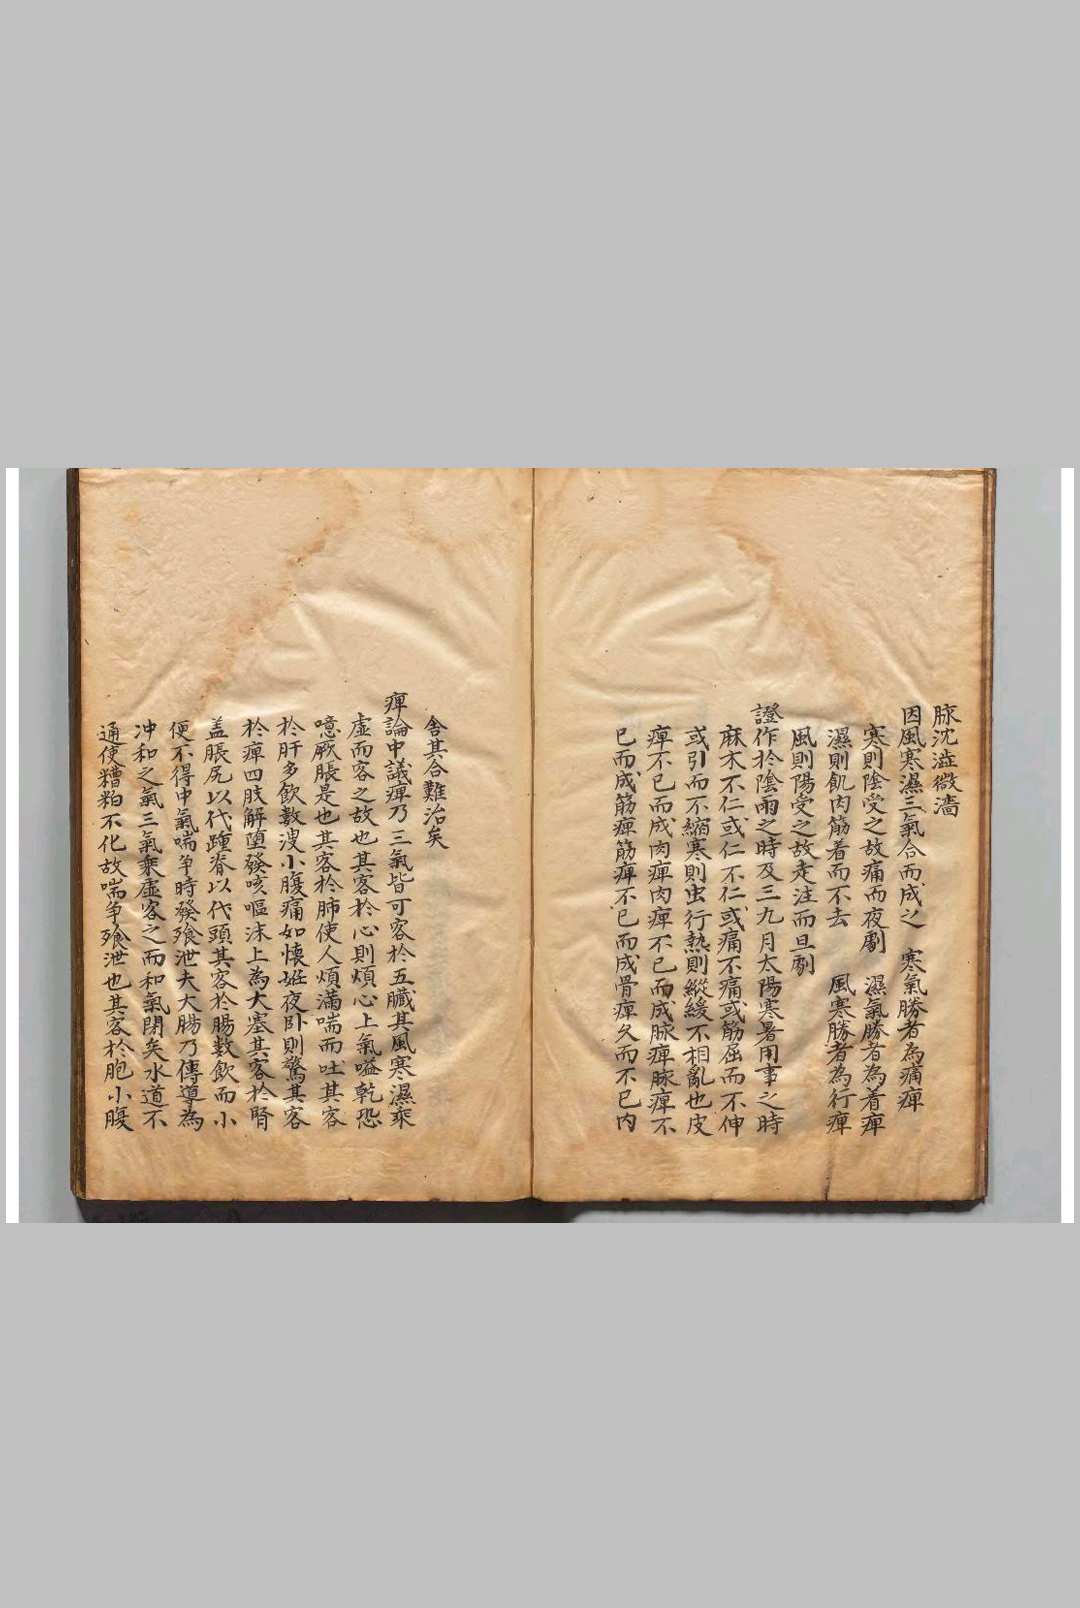 脉沈澁微濇
因風寒濕三氣合而成之　寒氣勝者為痛痺
寒則陰受之故痛而夜劇　濕氣勝者為着痺
濕則飢肉筋着而不去　風寒勝者為行痺
風則陽受之故走注而旦劇
證作於陰雨之時及三九月太陽寒暑用事之時
麻木不仁或仁不仁或痛不痛或筋屈而不伸
或引而不縮寒則虫行熱則縱緩不相亂也皮
痺不已而成肉痺肉痺不已而成脉痺脉痺不
已而成筋痺筋痺不已而成骨痺久而不已内
舎其合難治矣
痺論中議痺乃三氣皆可客於五臓其風寒濕乘
虚而客之故也其客於心則煩心上氣嗌乾恐
噫厥脹是也其客於肺使人煩滿喘而吐其客
於肝多飲數溲小腹痛如懐姙夜卧則驚其客
於痺四肢解堕發咳嘔沫上為大塞其客於腎
盖脹尻以代踵脊以代頭其客於腸數飲而小
便不得中氣喘争時發飱泄夫大腸乃傳導為
冲和之氣三氣乘虚客之而和氣閉矣水道不
通使糟粕不化故喘争飱泄也其客於胞小腹